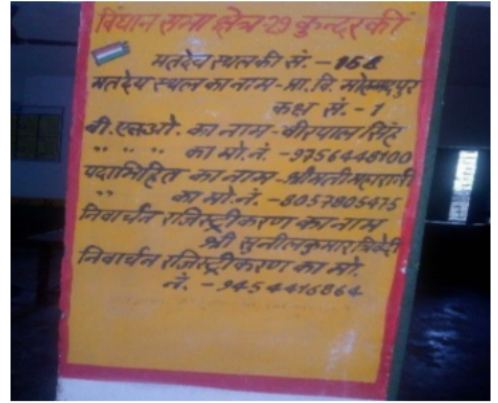 विधान सभा क्षेत्र-29 कुन्दरकी
मतदेय स्थल की सं. - 164
मतदेय स्थल का नाम - प्रा. वि. मोहम्मदपुर
कक्ष सं. - 1
बी. एल. ओ. का नाम - वीरपाल सिंह
" " " का मो. नं. - 9756448100
पदाभिहित का नाम - श्रीमती महारानी
" का मो. नं. - 8057805475
निवार्चन रजिस्ट्रीकरण का नाम
श्री सुनील कुमार त्रिवेदी
निवार्चन रजिस्ट्रीकरण का मो.
नं. - 9454416864